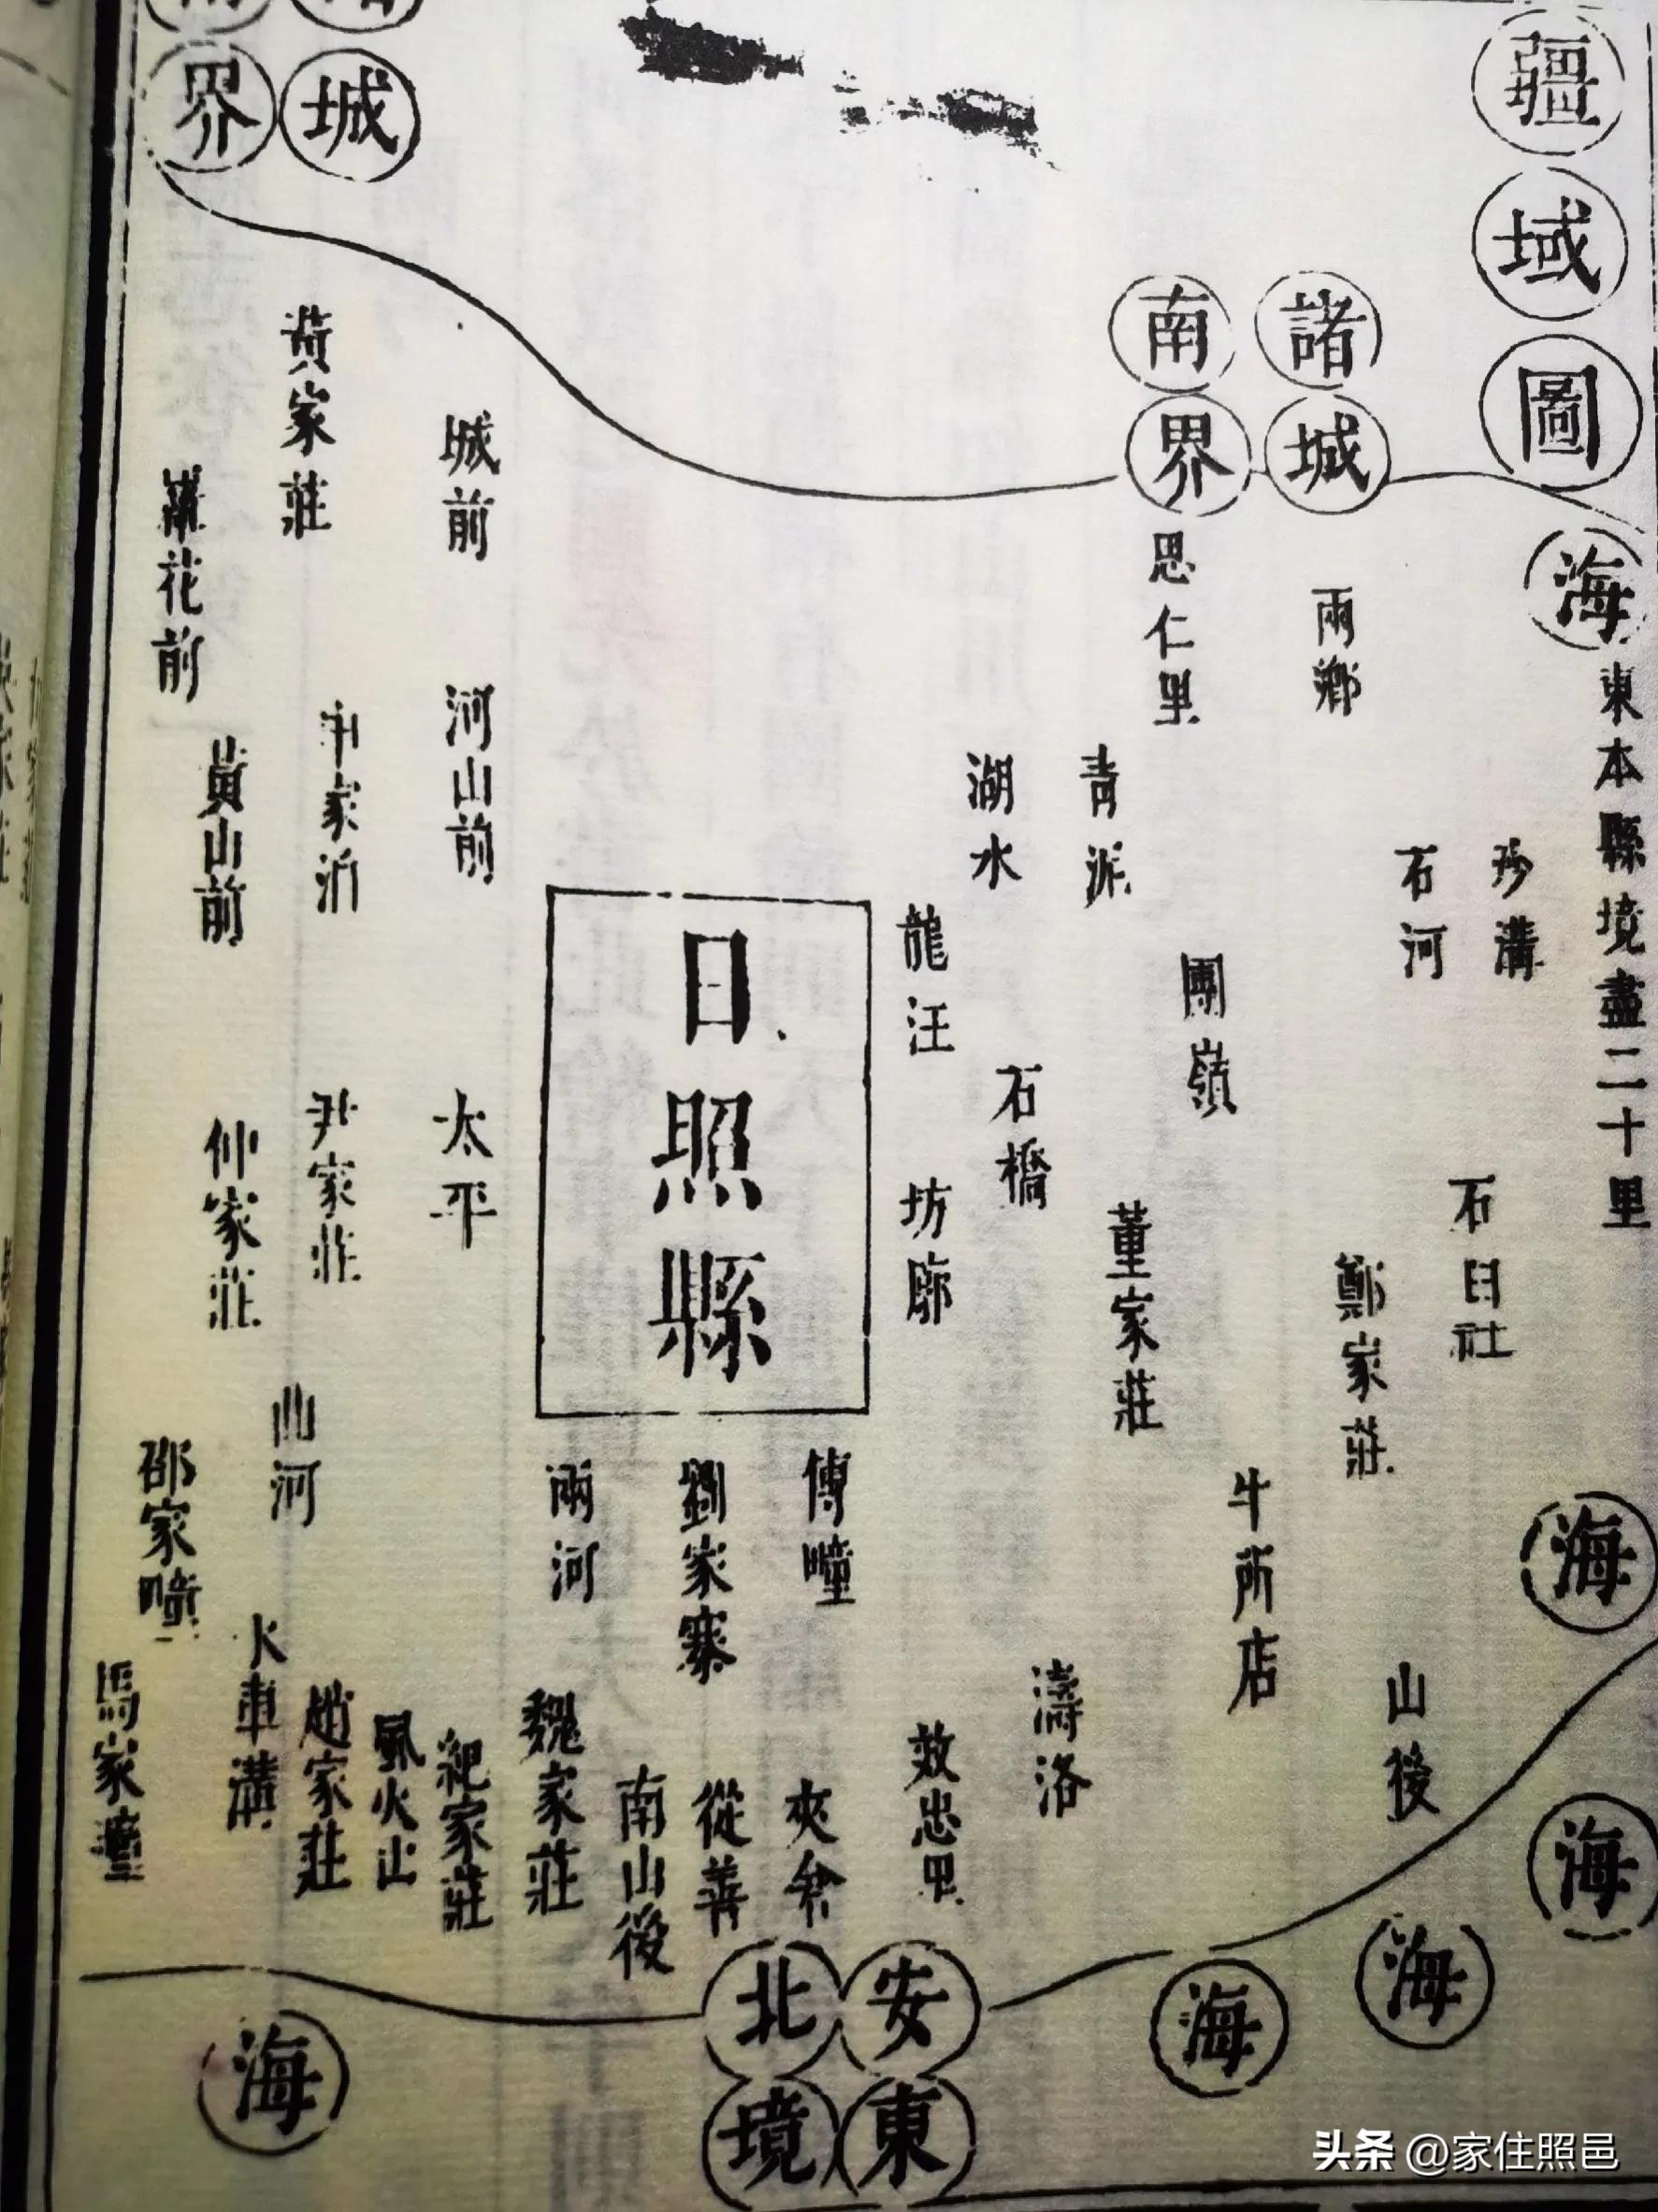 疆域圖
海
東本縣境盡二十里
諸城
南界
兩鄉
思仁里
沙溝
石河
石臼社
鄭家莊
青泥
湖水
團嶺
龍汪
石橋
董家莊
坊廓
牛所店
山後
濤洛
效忠里
日照縣
傅疃
劉家寨
兩河
夾倉
從善
南山後
魏家莊
紀家莊
風火山
趙家莊
城界
城前
河山前
太平
黃家莊
花前
黃山前
尹家莊
仲家莊
曲河
邵家疃
火車溝
馬家
海
海
海
海
安東
北境
海
头条 @家住照邑